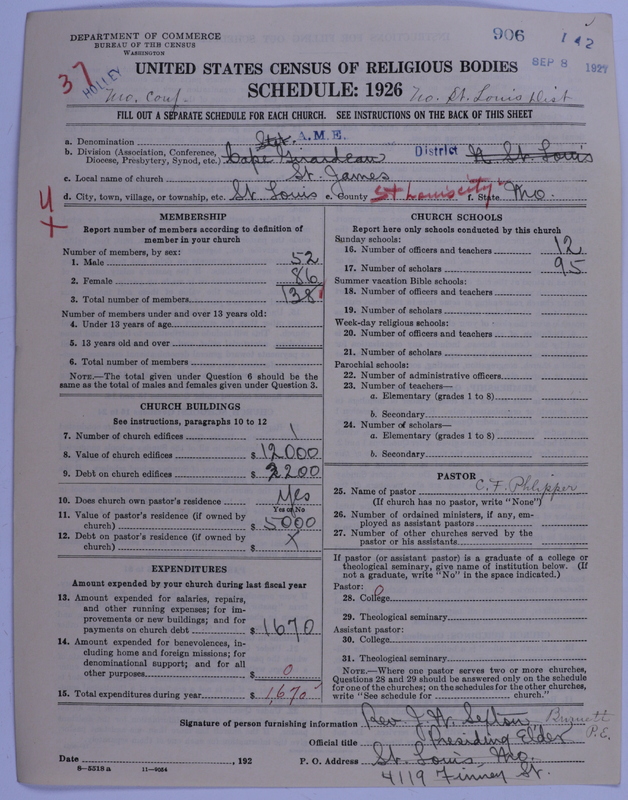 DEPARTMENT OF COMMERCE
BUREAU OF THE CENSUS
WASHINGTON
906
142
SEP 8 1927
37
HOLLEY
UNITED STATES CENSUS OF RELIGIOUS BODIES
Mo. Conf.
SCHEDULE: 1926
No. St. Louis Dist
FILL OUT A SEPARATE SCHEDULE FOR EACH CHURCH. SEE INSTRUCTIONS ON THE BACK OF THIS SHEET
a. Denomination A.M.E.
b. Division (Association, Conference, Diocese, Presbytery, Synod, etc.) Cape Girardeau District N. St. Louis
c. Local name of church St. James
d. City, town, village, or township, etc. St Louis e. County St Louis city f. State Mo.
4
MEMBERSHIP
Report number of members according to definition of
member in your church
Number of members, by sex:
1. Male 52
2. Female 86
3. Total number of members 138
Number of members under and over 13 years old:
4. Under 13 years of age
5. 13 years old and over
6. Total number of members
NOTE.—The total given under Question 6 should be the
same as the total of males and females given under Question 3.
CHURCH BUILDINGS
See instructions, paragraphs 10 to 12
7. Number of church edifices 1
8. Value of church edifices $ 12000
9. Debt on church edifices $ 2200
10. Does church own pastor's residence Yes
Yes or No
11. Value of pastor's residence (if owned by
church) $ 5000
12. Debt on pastor's residence (if owned by
church) $ X
EXPENDITURES
Amount expended by your church during last fiscal year
13. Amount expended for salaries, repairs,
and other running expenses; for im-
provements or new buildings; and for
payments on church debt $ 1670
14. Amount expended for benevolences, in-
cluding home and foreign missions; for
denominational support; and for all
other purposes $ 0
15. Total expenditures during year $ 1,670
CHURCH SCHOOLS
Report here only schools conducted by this church
Sunday schools:
16. Number of officers and teachers 12
17. Number of scholars 95
Summer vacation Bible schools:
18. Number of officers and teachers
19. Number of scholars
Week-day religious schools:
20. Number of officers and teachers
21. Number of scholars
Parochial schools:
22. Number of administrative officers
23. Number of teachers—
a. Elementary (grades 1 to 8)
b. Secondary
24. Number of scholars—
a. Elementary (grades 1 to 8)
b. Secondary
PASTOR
25. Name of pastor C. F. Phlipper
(If church has no pastor, write "None")
26. Number of ordained ministers, if any, em-
ployed as assistant pastors
27. Number of other churches served by the
pastor or his assistants
If pastor (or assistant pastor) is a graduate of a college or
theological seminary, give name of institution below. (If
not a graduate, write "No" in the space indicated.)
Pastor:
28. College 0
29. Theological seminary
Assistant pastor:
30. College
31. Theological seminary
NOTE.—Where one pastor serves two or more churches,
Questions 28 and 29 should be answered only on the schedule
for one of the churches; on the schedules for the other churches,
write "See schedule for church."
Signature of person furnishing information Rev. J. W. Septon, Burnett
Official title Presiding Elder P.E.
Date , 192 P. O. Address St. Louis, Mo.
8—5518 a 11—9054 4119 Finney St.